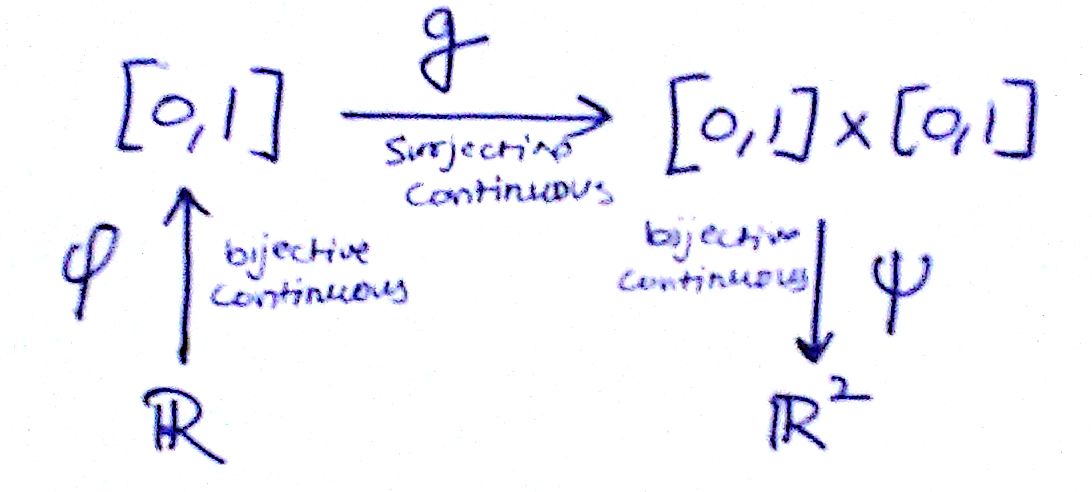 g
[0,1]
[0,1] x [0,1]
Surjective
Continuous
φ
bijective
continuous
bijective
continuous
ψ
ℝ
ℝ²